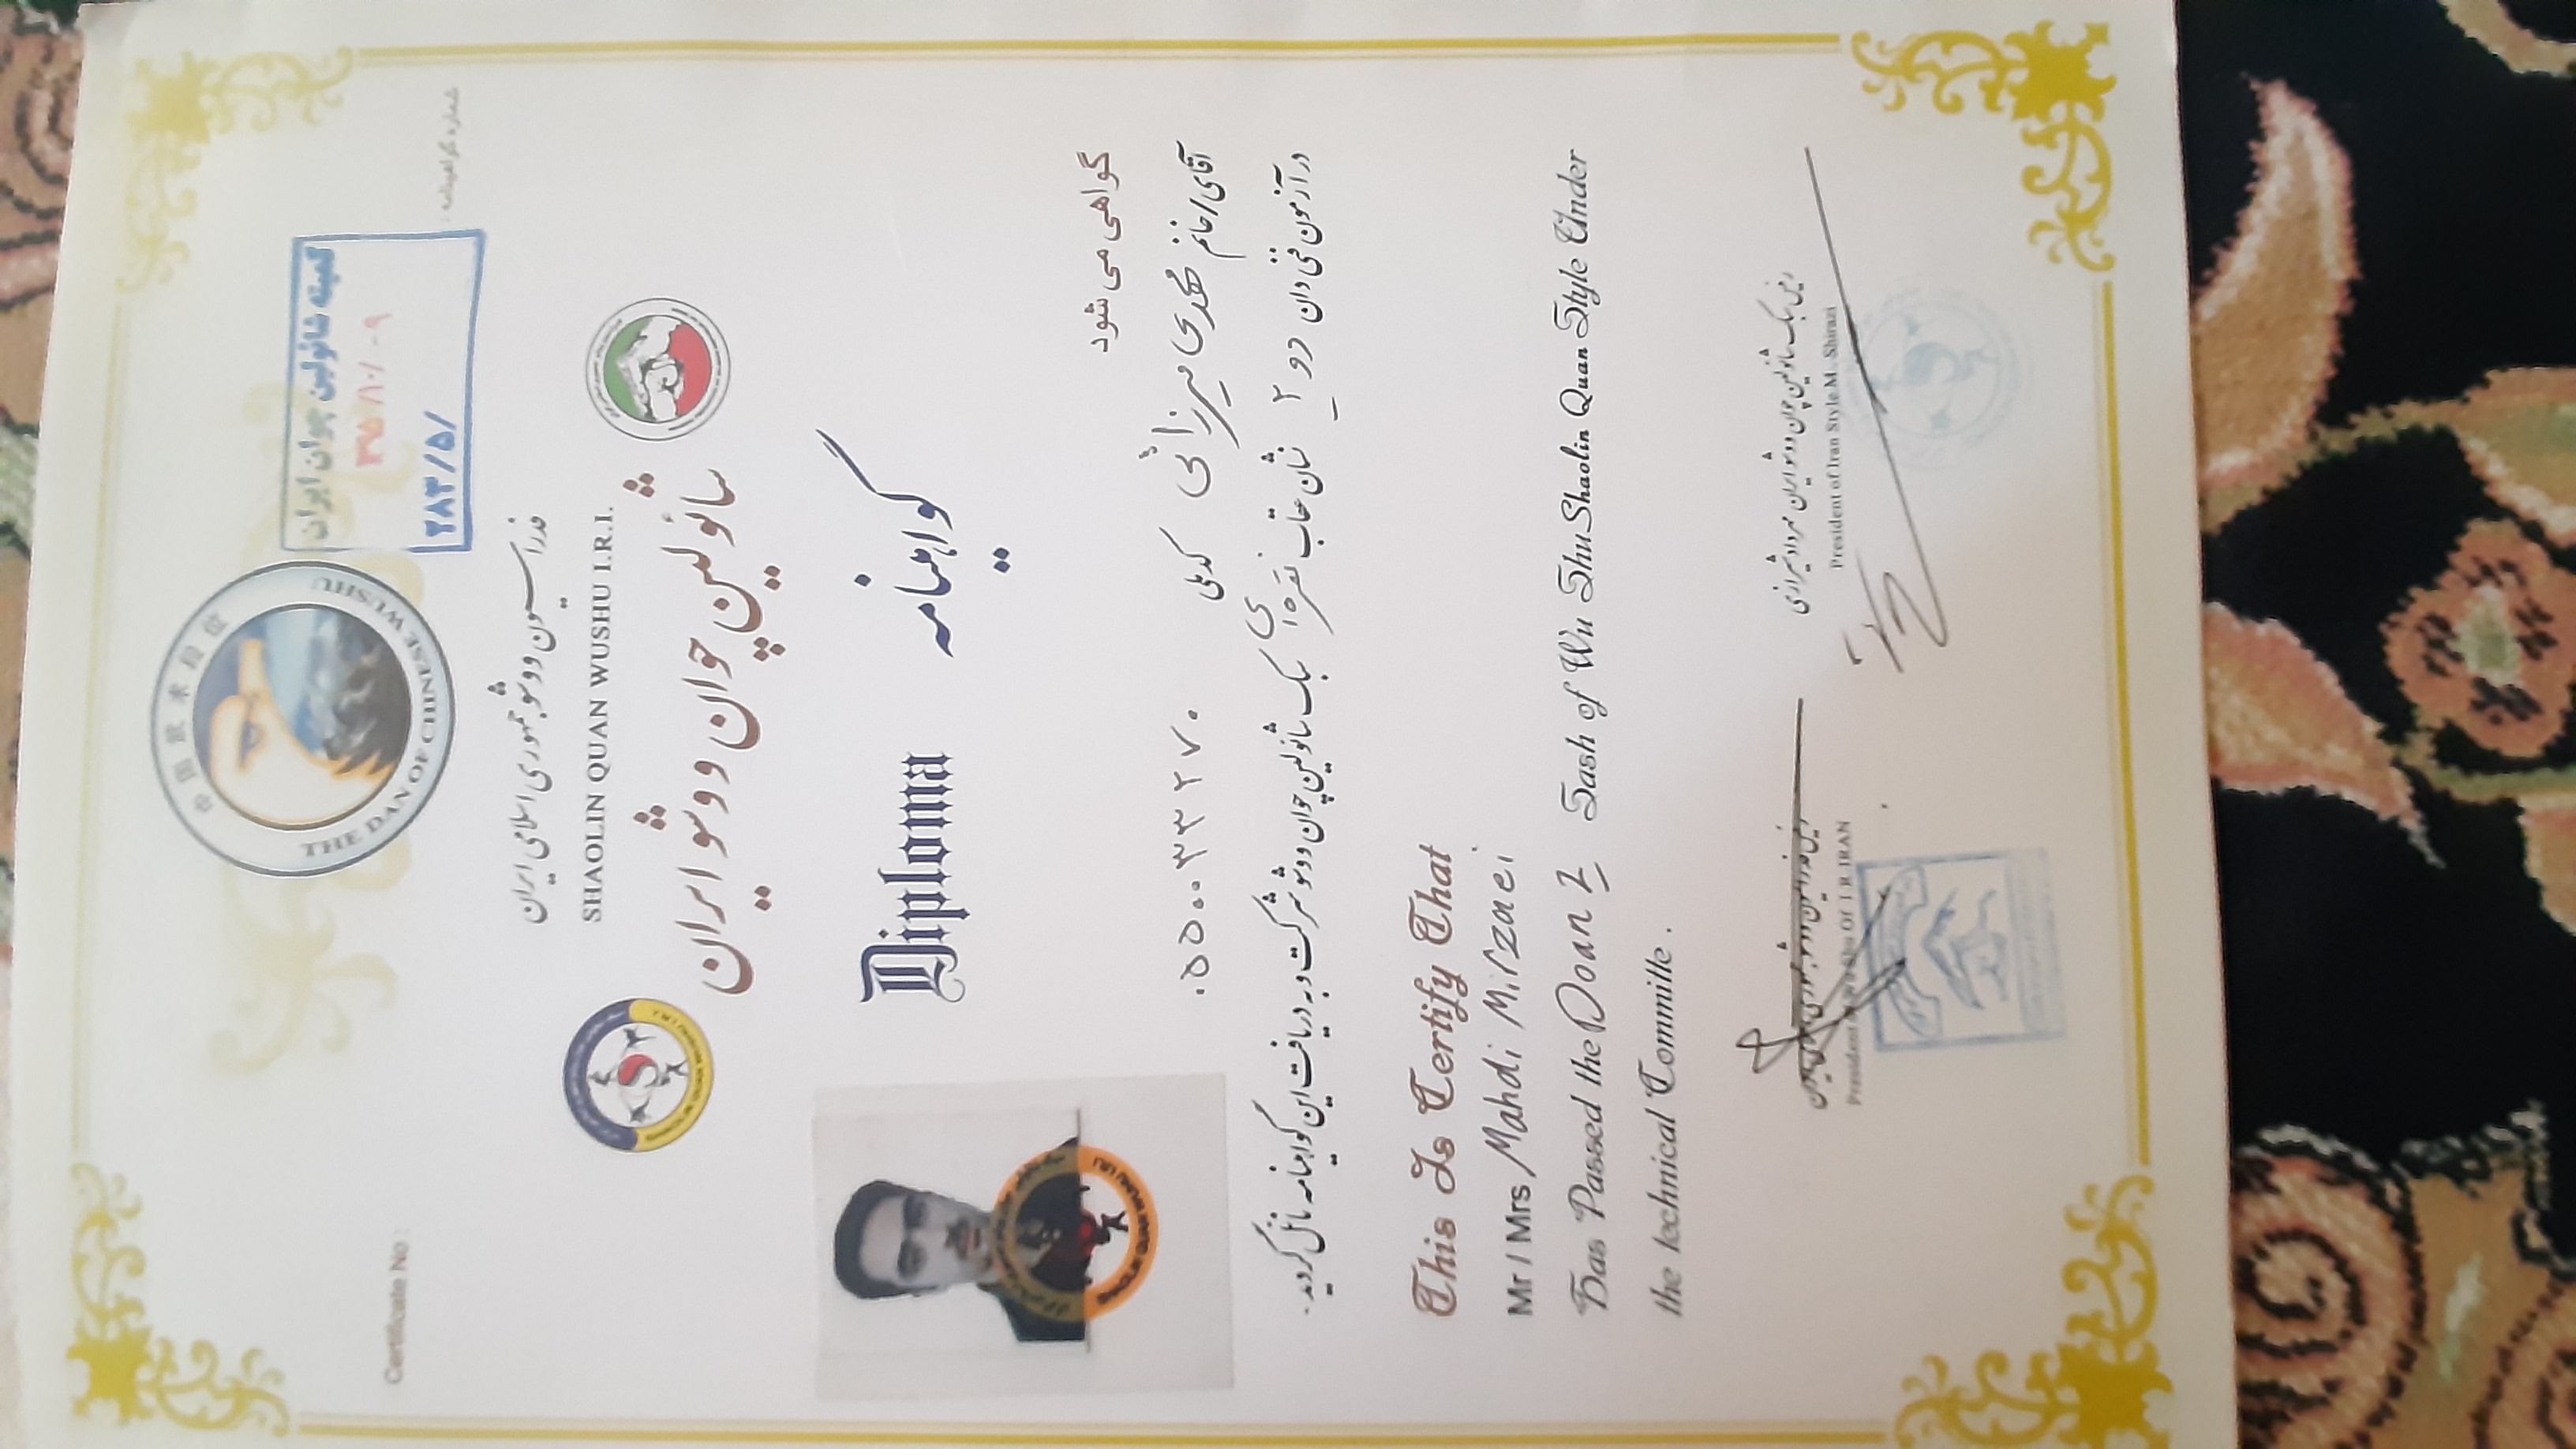 中国武术段位
THE DAN OF CHINESE WUSHU
کمیته شائولین چوان ایران
۲۸۳/۵/
Certificate No :
شماره گواهینامه :
فدراسیون ووشو جمهوری اسلامی ایران
SHAOLIN QUAN WUSHU I.R.I.
شائولین چوان ووشو ایران
Diploma
گواهینامه
گواهی می شود
آقای/خانم مهدی میرزائی کدملی ۰۵۵۰۰۳۳۲۷۰
در آزمون فنی دان دو ۲ نشان عقاب نقره ای سبک شائولین چوان ووشو شرکت و به دریافت این گواهینامه نائل گردید.
This Is Certify That
Mr / Mrs Mahdi Mirzaei
Has Passed the Doan 2 Sash of Wu Shu Shaolin Quan Style Under
the technical Committe .
رئیس سبک شائولین چوان ووشو ایران مهرداد شیرازی
President of Iran Style M. Shirazi
رئیس فدراسیون ووشو جمهوری اسلامی ایران
Of I R IRAN